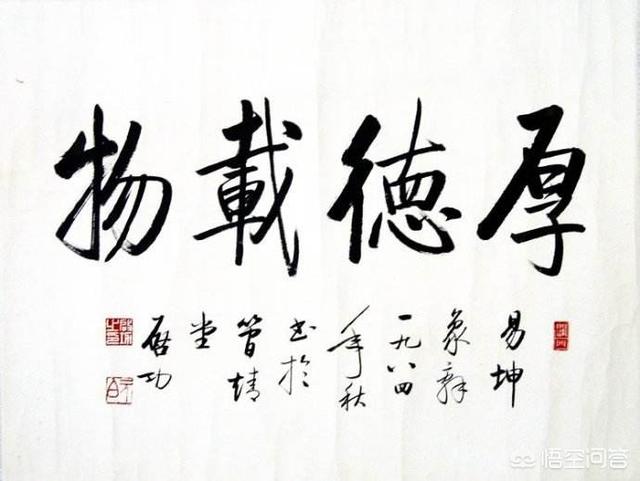 厚德載物
易坤
象辞
一九八四
年秋
书於
簡靖
堂
启功
悟空问答